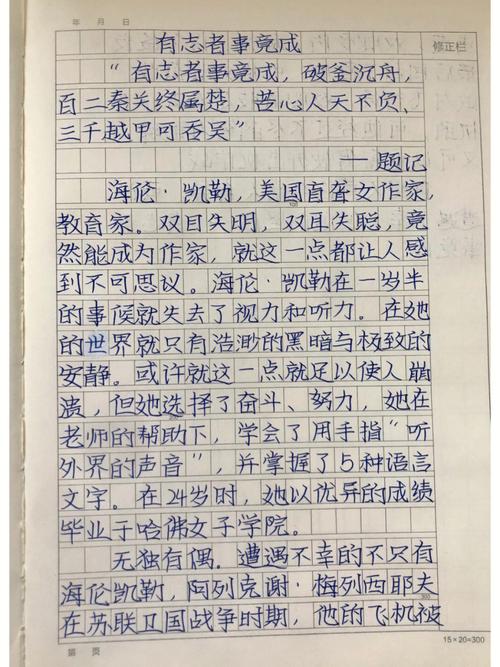 年 月 日
修正栏
有志者事竟成
“有志者事竟成，破釜沉舟，
百二秦关终属楚，苦心人天不负、
三千越甲可吞吴”
——题记
海伦·凯勒，美国盲聋女作家，
教育家。双目失明，双耳失聪，竟
然能成为作家，就这一点都让人感
到不可思议。海伦·凯勒在一岁半
的事候就失去了视力和听力。在她
的世界就只有浩渺的黑暗与极致的
安静。或许就这一点就足以使人崩
溃，但她选择了奋斗、努力，她在
老师的帮助下，学会了用手指“听
外界的声音”，并掌握了5种语言
文字。在24岁时，她以优异的成绩
毕业于哈佛女子学院。
无独有偶。遭遇不幸的不只有
海伦凯勒，阿列克谢·梅列西耶夫
300
在苏联卫国战争时期，他的飞机被
第 页
15×20=300